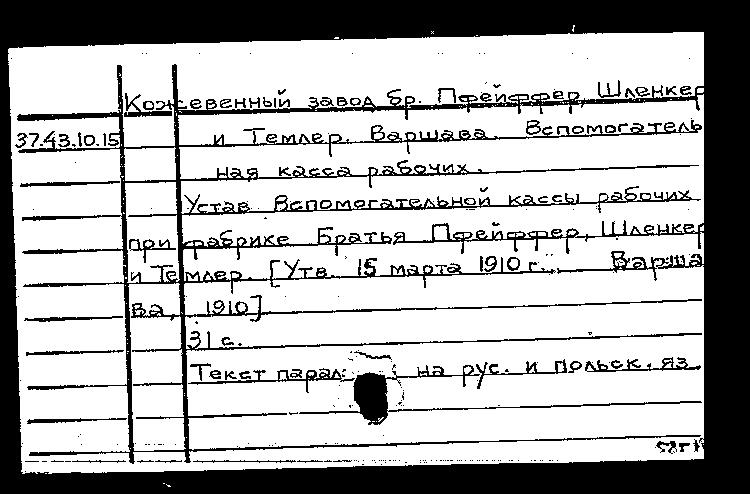 Кожевенный завод бр. Пфейффер, Шленкер
37.43.10.15 и Темлер. Варшава. Вспомогатель
ная касса рабочих.
Устав Вспомогательной кассы рабочих
при фабрике Братья Пфейффер, Шленкер
и Темлер. [Утв. 15 марта 1910 г.. Варша
ва, 1910]
31 с.
Текст парал. на рус. и польск. яз.